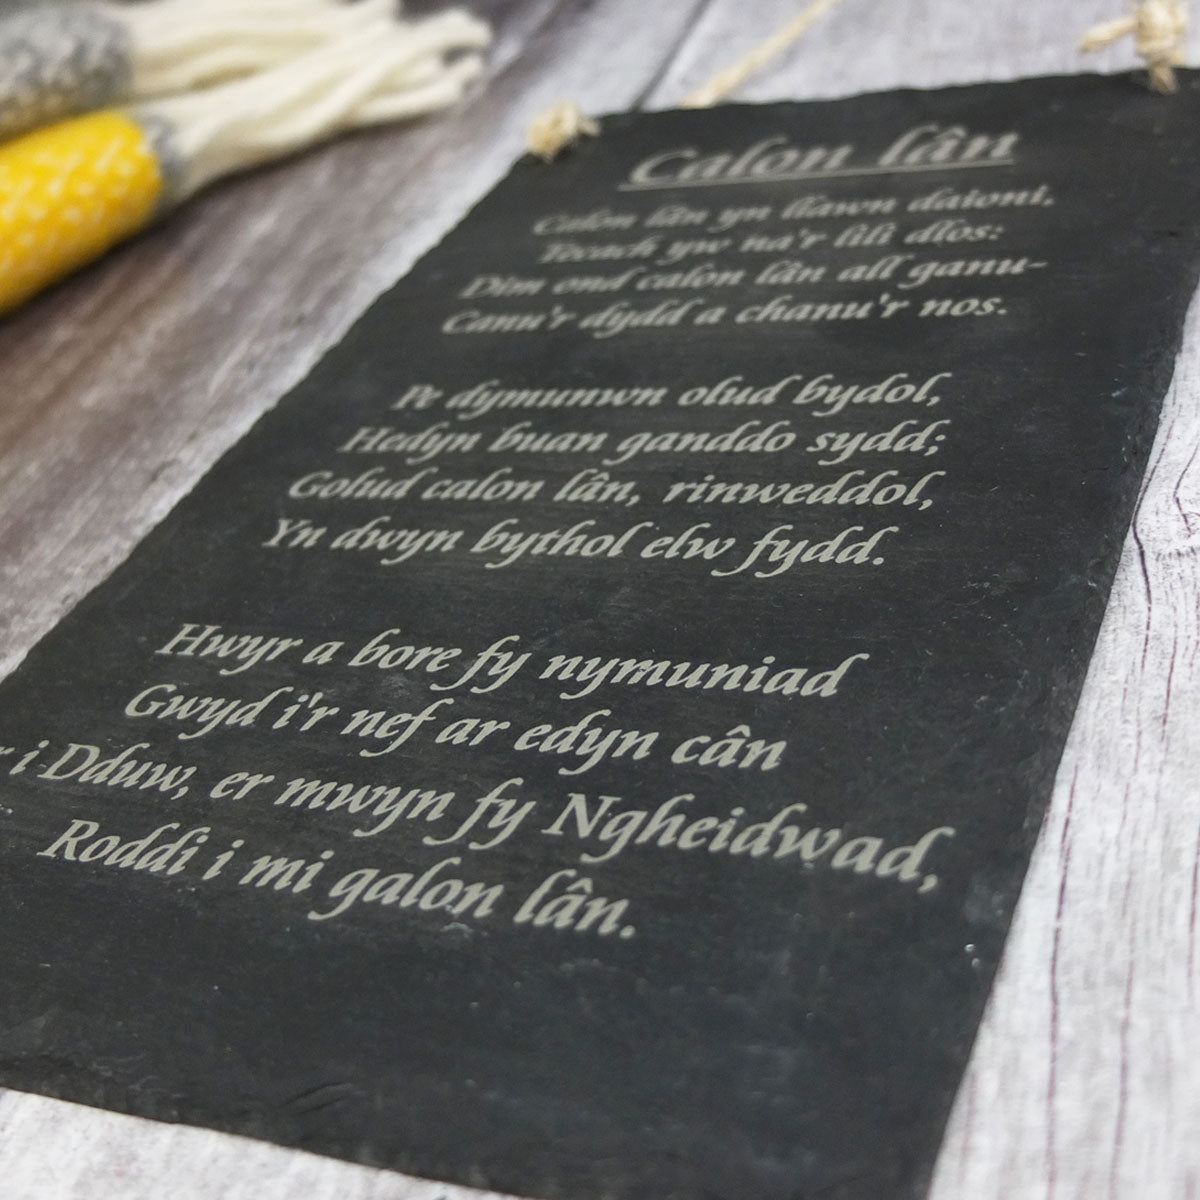 Calon lân
Calon lân yn llawn daioni,
Tecach yw na'r lili dlos:
Dim ond calon lân all ganu-
Canu'r dydd a chanu'r nos.
Pe dymunwn olud bydol,
Hedyn buan ganddo sydd;
Golud calon lân, rinweddol,
Yn dwyn bythol elw fydd.
Hwyr a bore fy nymuniad
Gwyd i'r nef ar edyn cân
i Dduw, er mwyn fy Ngheidwad,
Roddi i mi galon lân.